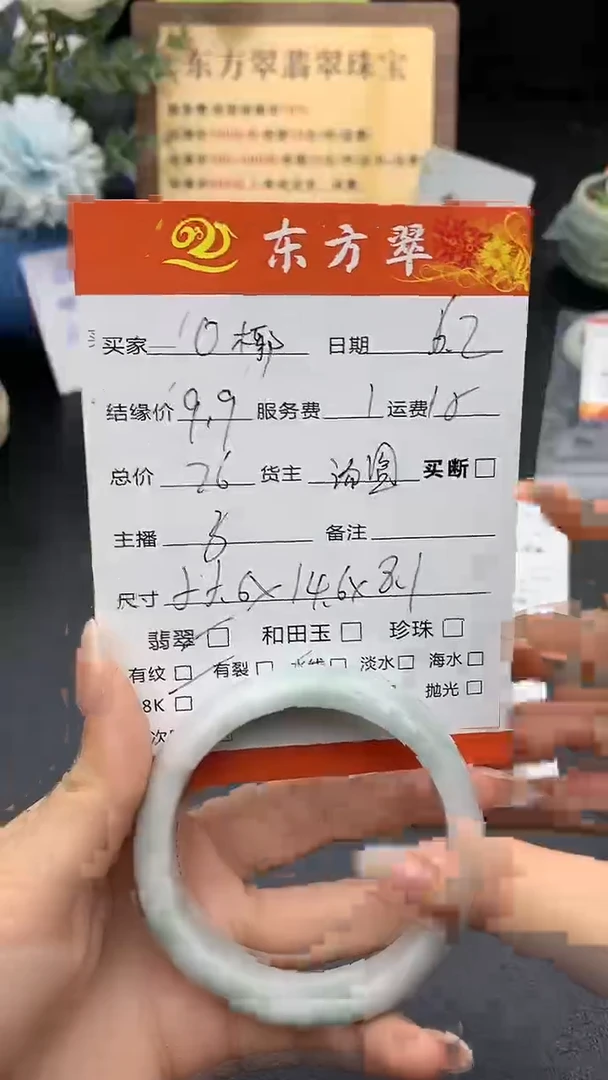 东方翠翡翠珠宝
东方翠
买家 10 日期 6.2
结缘价 9.9 服务费 1 运费 15
总价 26 货主 买断
主播 备注
尺寸 55.6x14.6x8.1
翡翠 和田玉 珍珠
有纹 有裂 水线 淡水 海水
8K 抛光
次